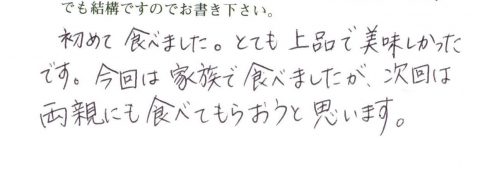 でも結構ですのでお書き下さい。
初めて食べました。とても上品で美味しかった
です。今回は家族で食べましたが、次回は
両親にも食べてもらおうと思います。